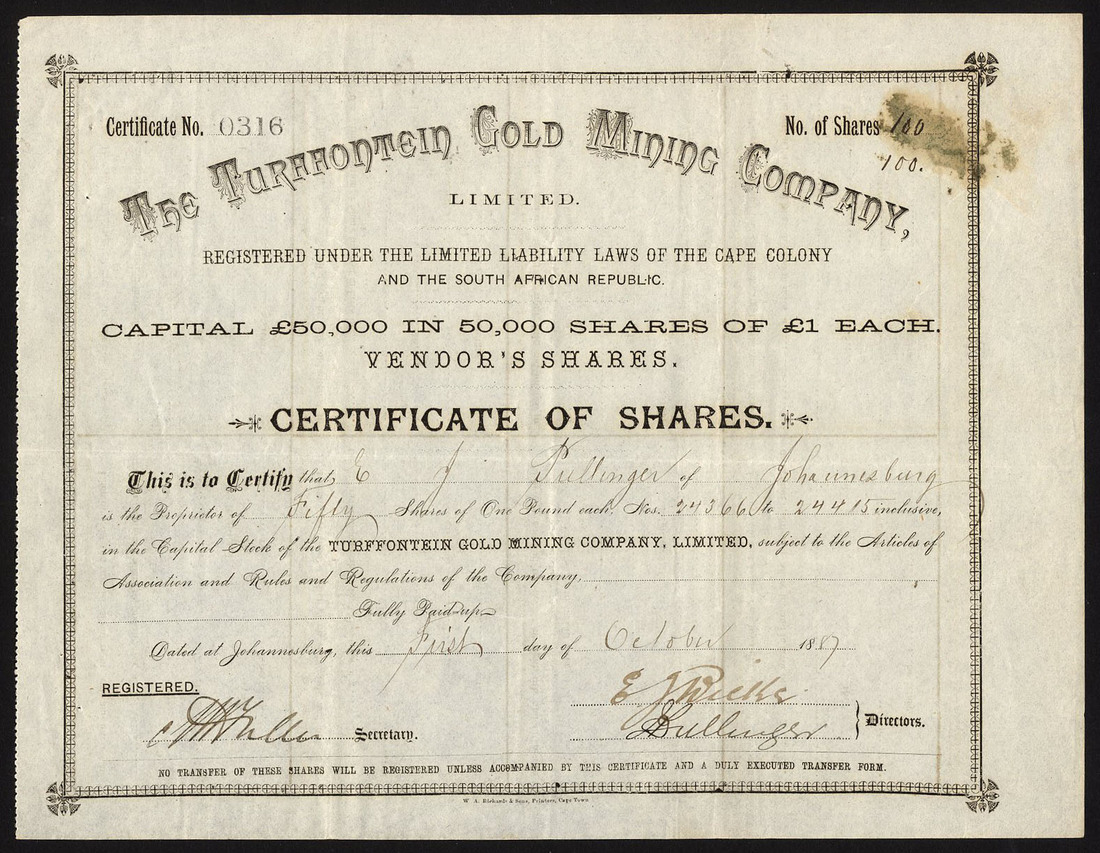 Certificate No. 0316
No. of Shares 100
100.
The Turffontein Gold Mining Company,
LIMITED.
REGISTERED UNDER THE LIMITED LIABILITY LAWS OF THE CAPE COLONY
AND THE SOUTH AFRICAN REPUBLIC.
CAPITAL £50,000 IN 50,000 SHARES OF £1 EACH.
VENDOR'S SHARES.
CERTIFICATE OF SHARES.
This is to Certify that E J Pullinger of Johannesburg
is the Proprietor of Fifty Shares of One Pound each. Nos. 24366 to 24415 inclusive,
in the Capital Stock of the TURFFONTEIN GOLD MINING COMPANY, LIMITED, subject to the Articles of
Association and Rules and Regulations of the Company,
Fully Paid-up
Dated at Johannesburg, this First day of October 1887
REGISTERED.
Secretary.
Pullinger
Directors.
NO TRANSFER OF THESE SHARES WILL BE REGISTERED UNLESS ACCOMPANIED BY THIS CERTIFICATE AND A DULY EXECUTED TRANSFER FORM.
W. A. Richards & Sons, Printers, Cape Town